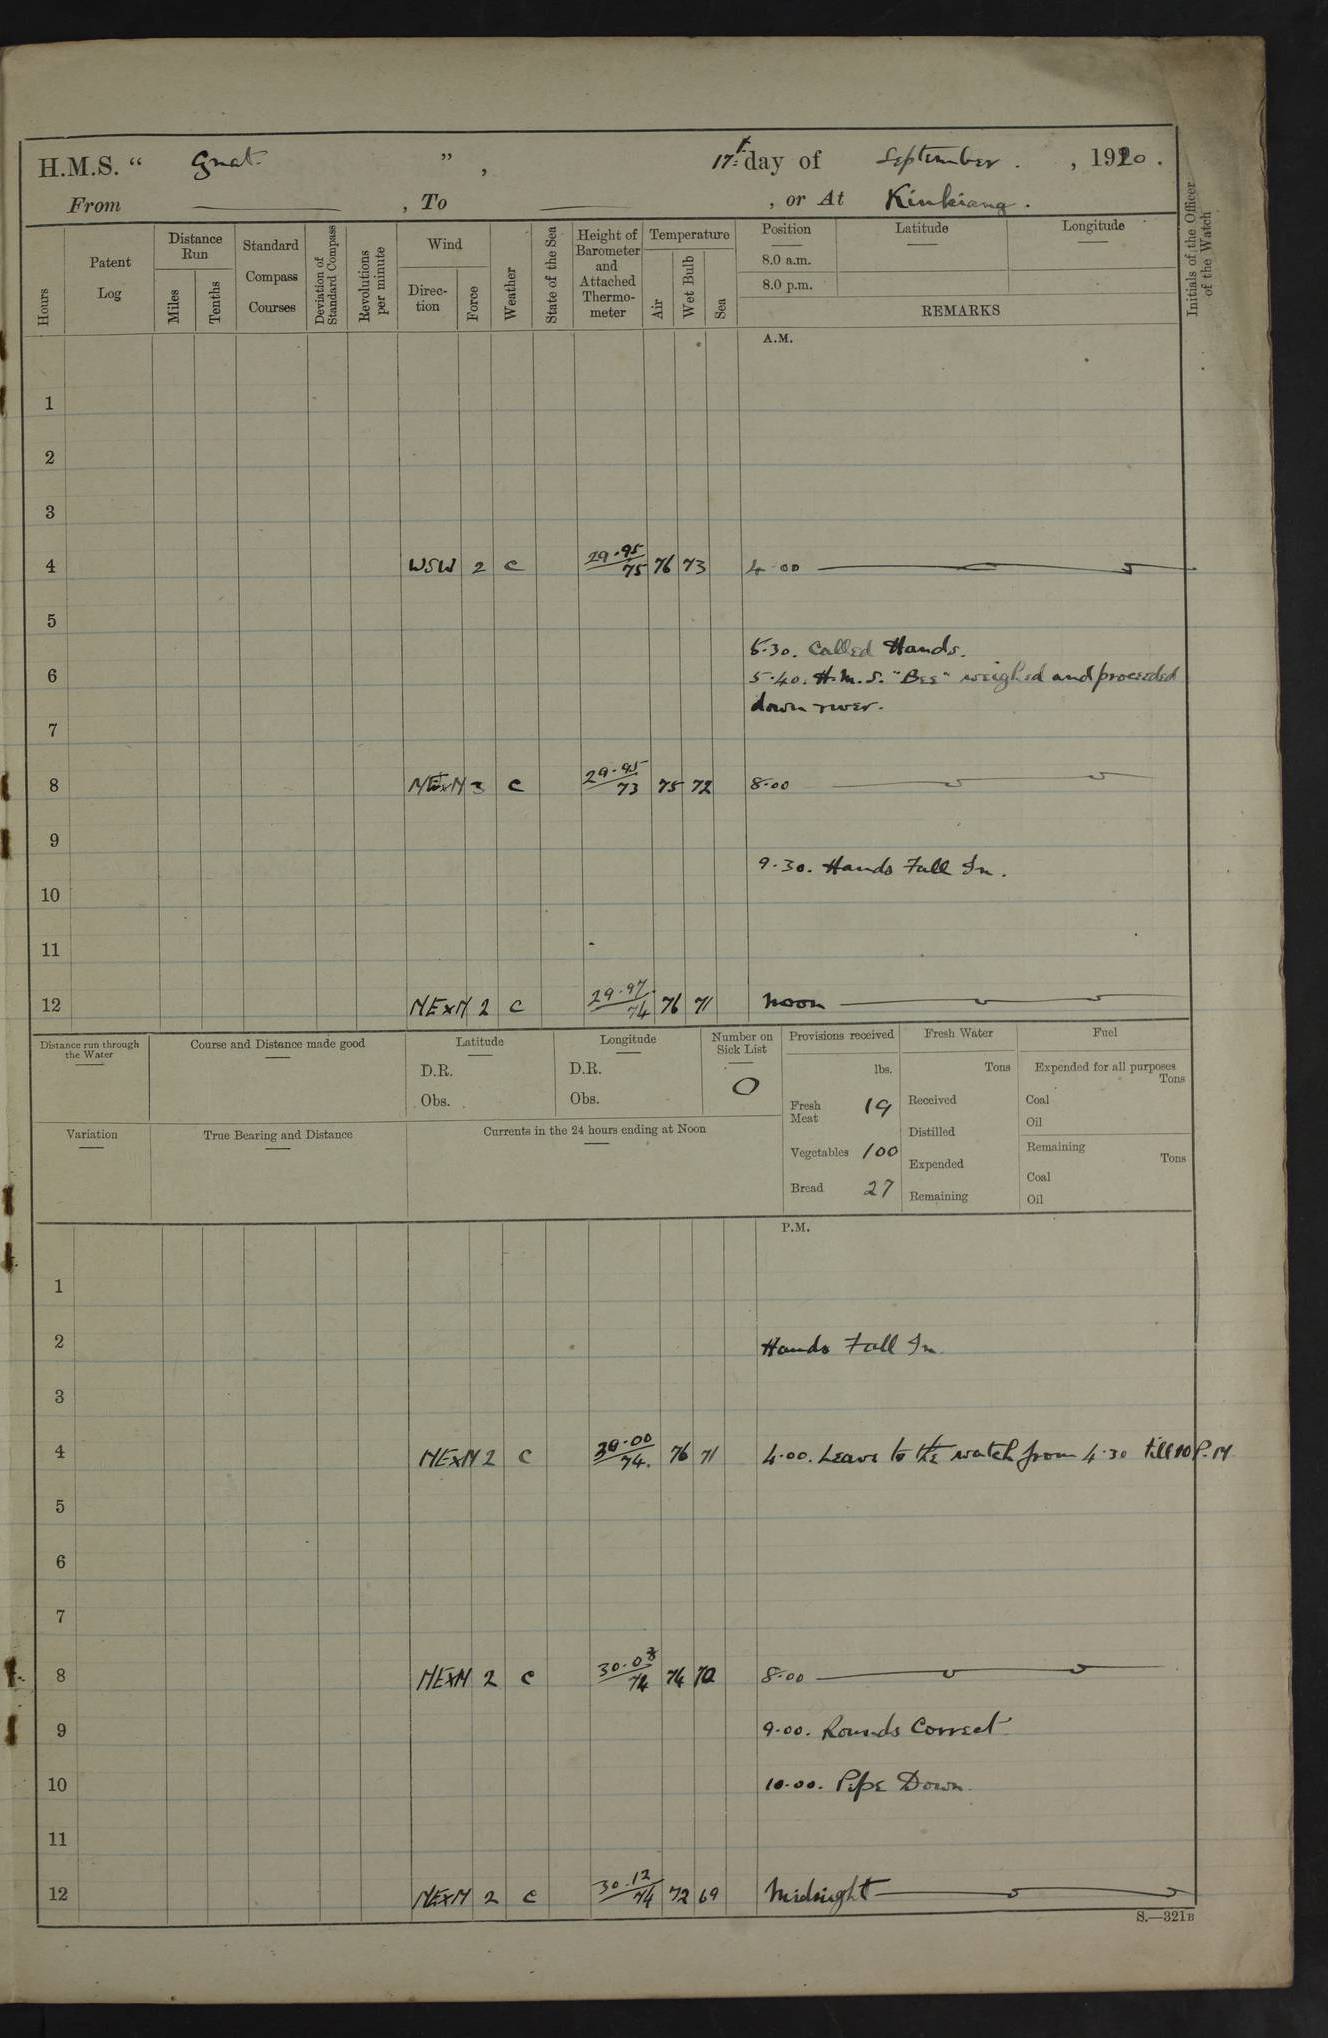 H.M.S. “ Gnat. ” , 17th day of September . , 1920 .
From , To , or At Kiukiang .
Hours
Patent Log
Distance Run
Miles
Tenths
Standard Compass Courses
Deviation of Standard Compass
Revolutions per minute
Wind
Direction
Force
Weather
State of the Sea
Height of Barometer and Attached Thermometer
Temperature
Air
Wet Bulb
Sea
Position
8.0 a.m.
8.0 p.m.
Latitude
Longitude
REMARKS
Initials of the Officer of the Watch
A.M.
1
2
3
4 WSW 2 c 29.95/75 76 73 4.00
5
5.30. Called Hands.
6 5.40. H.M.S. "Bee" weighed and proceeded
down river.
7
8 NExN 3 c 29.95/73 75 72 8.00
9
9.30. Hands Fall In.
10
11
12 NExN 2 c 29.97/74 76 71 Noon
Distance run through the Water
Course and Distance made good
Latitude
D.R.
Obs.
Longitude
D.R.
Obs.
Number on Sick List
0
Provisions received
lbs.
Fresh Meat 19
Vegetables 100
Bread 27
Fresh Water
Tons
Received
Distilled
Expended
Remaining
Fuel
Expended for all purposes
Tons
Coal
Oil
Remaining
Tons
Coal
Oil
Variation
True Bearing and Distance
Currents in the 24 hours ending at Noon
P.M.
1
2 Hands Fall In
3
4 NExN 2 c 30.00/74. 76 71 4.00. Leave to the watch from 4.30 till 10 P.M
5
6
7
8 NExN 2 c 30.08/74 74 70 8.00
9 9.00. Rounds Correct
10 10.00. Pipe Down.
11
12 NExN 2 c 30.12/74 72 69 Midnight
S.—321B